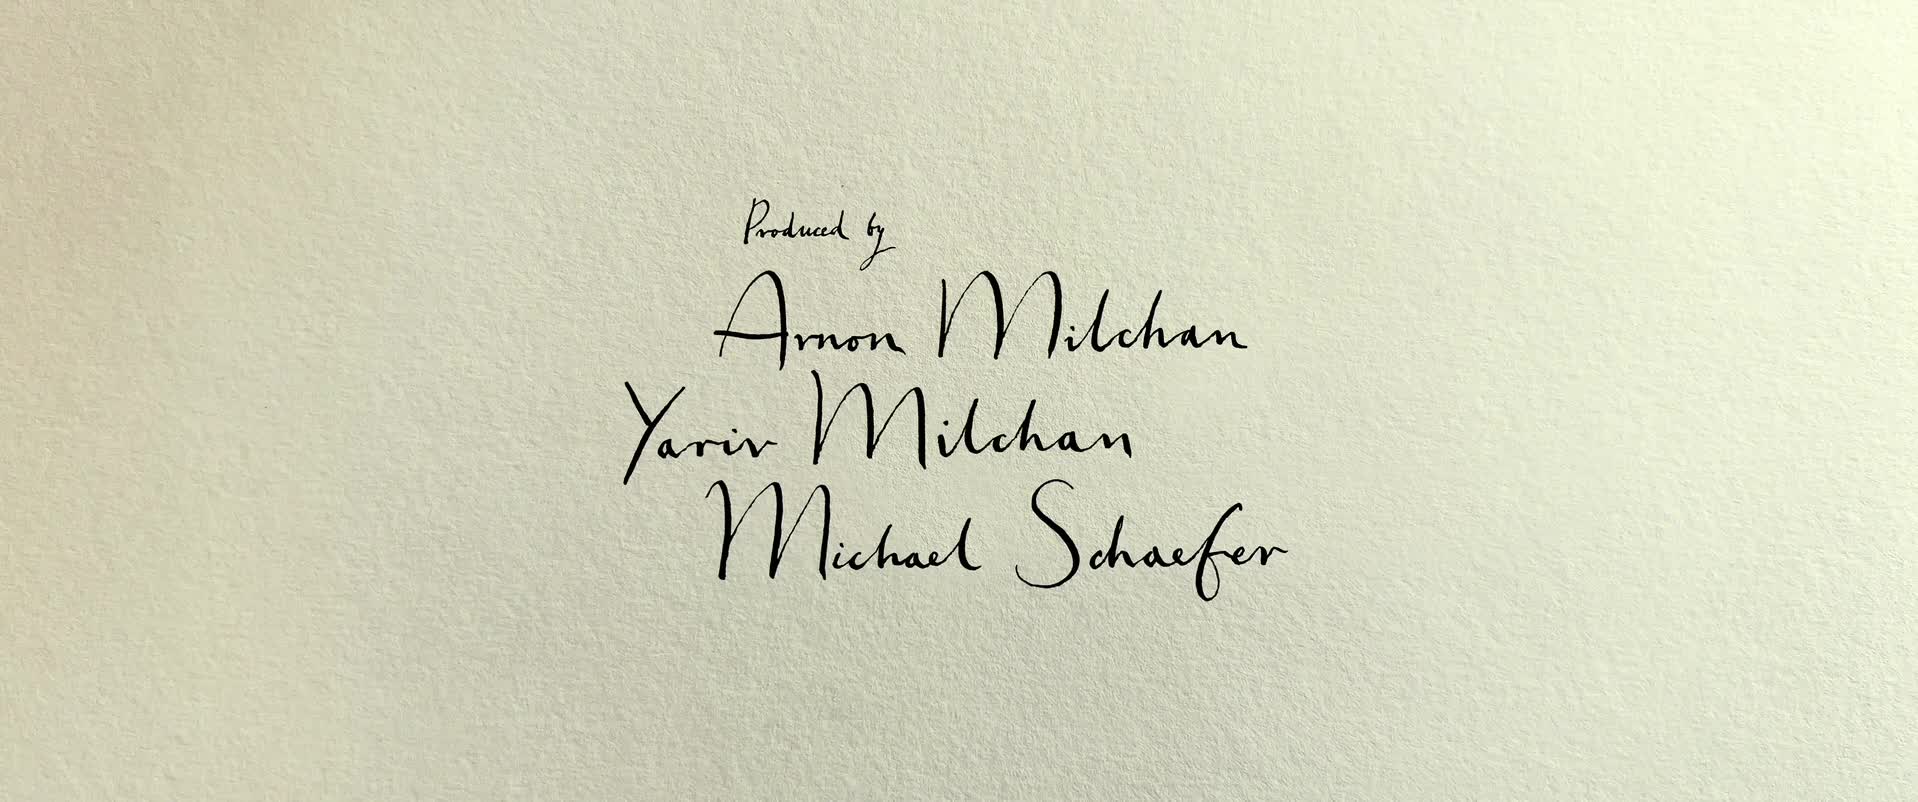 Produced by
Arnon Milchan
Yariv Milchan
Michael Schaefer